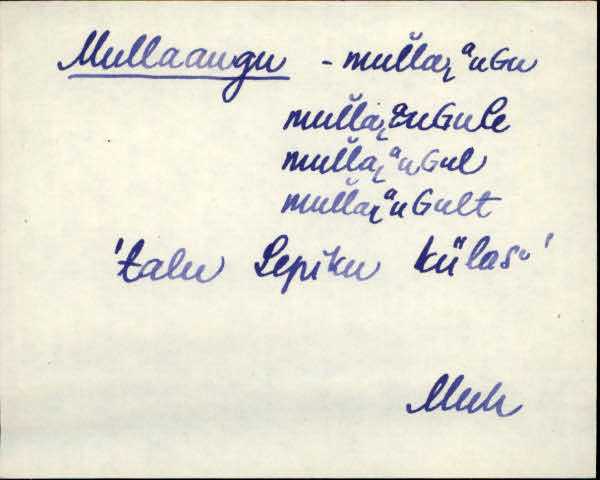 Mullaaugu - mulla̮ᵃuGu
mulla̮ᵃuGule
mulla̮ᵃuGul
mulla̮ᵃuGult
'talu Lepiku külas'
Muh